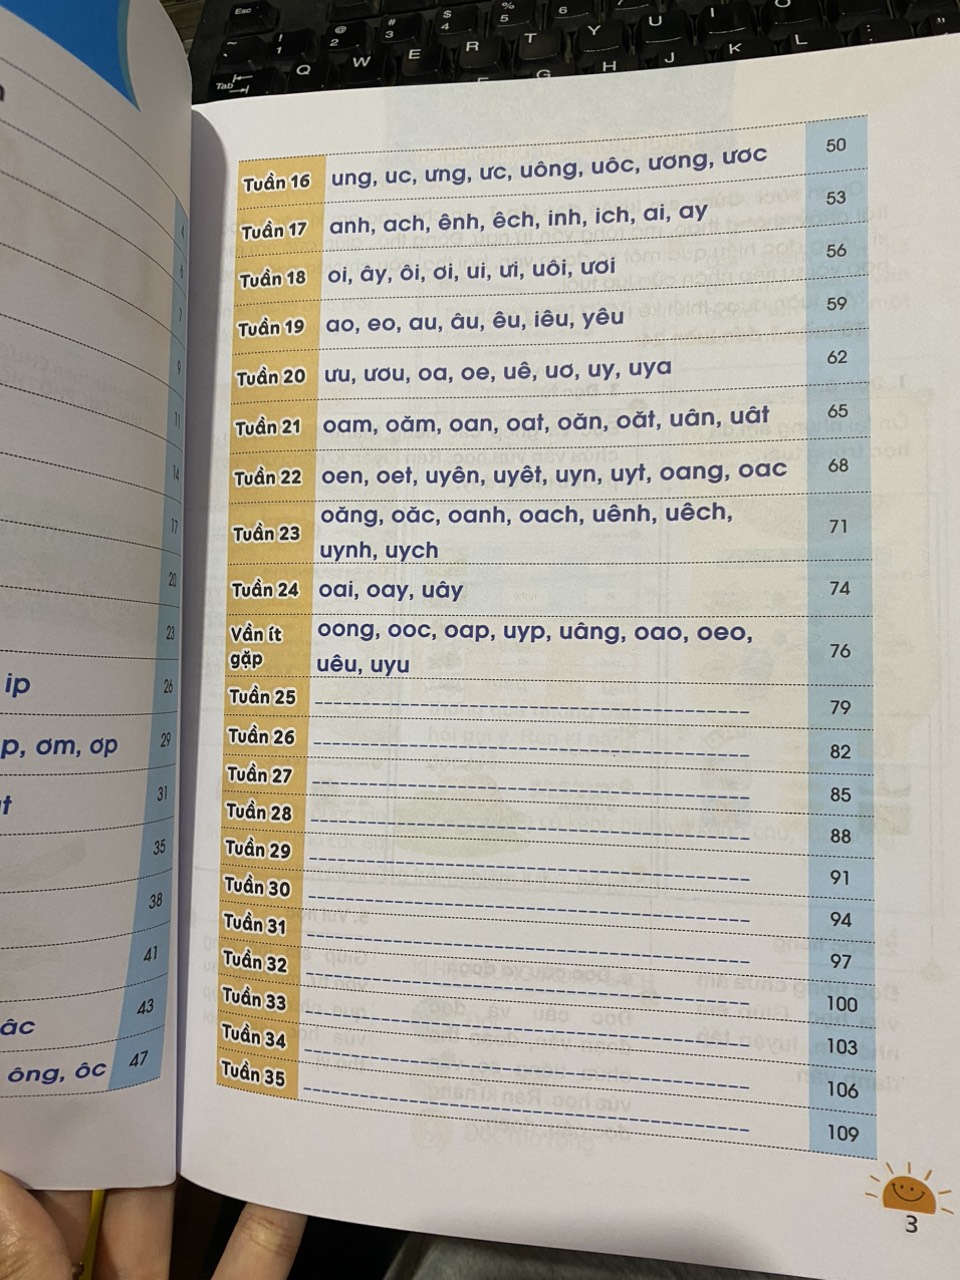 4
6
7
9
11
14
17
20
23
ip 26
p, ơm, ơp 29
31
35
38
41
âc 43
ông, ôc 47
Tuần 16 ung, uc, ưng, ưc, uông, uôc, ương, ươc 50
Tuần 17 anh, ach, ênh, êch, inh, ich, ai, ay 53
Tuần 18 oi, ây, ôi, ơi, ui, ưi, uôi, ươi 56
Tuần 19 ao, eo, au, âu, êu, iêu, yêu 59
Tuần 20 ưu, ươu, oa, oe, uê, uơ, uy, uya 62
Tuần 21 oam, oăm, oan, oat, oăn, oăt, uân, uât 65
Tuần 22 oen, oet, uyên, uyêt, uyn, uyt, oang, oac 68
Tuần 23 oăng, oăc, oanh, oach, uênh, uêch, 71
uynh, uych
Tuần 24 oai, oay, uây 74
Vần ít oong, ooc, oap, uyp, uâng, oao, oeo, 76
gặp uêu, uyu
Tuần 25 79
Tuần 26 82
Tuần 27 85
Tuần 28 88
Tuần 29 91
Tuần 30 94
Tuần 31 97
Tuần 32 100
Tuần 33 103
Tuần 34 106
Tuần 35 109
3
Esc
! @ # $ % 6
~ 1 2 3 4 5
Tab Q W E R T Y U I
G H J K L